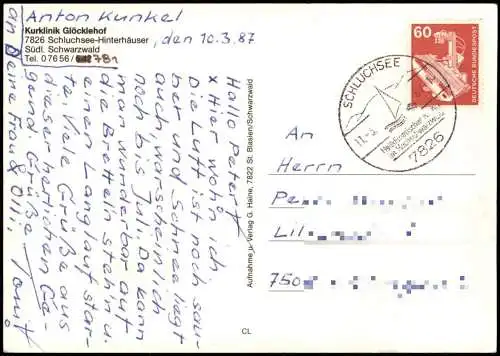 Anton Kunkel
Kurklinik Glöcklehof
7826 Schluchsee-Hinterhäuser
Südl. Schwarzwald
Tel. 07656/ 781
, den 10.3.87
Hallo Peter!
x Hier wohn ich
Die Luft ist noch sau-
ber und Schnee liegt
auch, warscheinlich
noch bis Juli. Da kann
man wunderbar auf
die Bretteln stehn u.
einen Langlauf star-
ten. Viele Grüße aus
dieser herrlichen Ge-
gend. Grüße
an Deine Frau u. Olli.
Toni
Aufnahme u. Verlag G. Haine, 7822 St. Blasien/Schwarzwald
CL
60
DEUTSCHE BUNDESPOST
SCHLUCHSEE
7826
An
Herrn
Pe
Lil
750